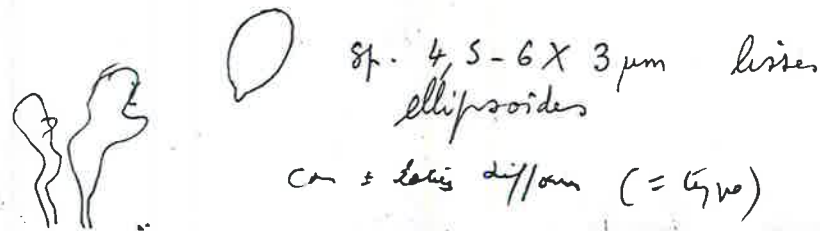 Sp. 4,5-6 X 3 µm lisses
ellipsoïdes
± difform (= type)